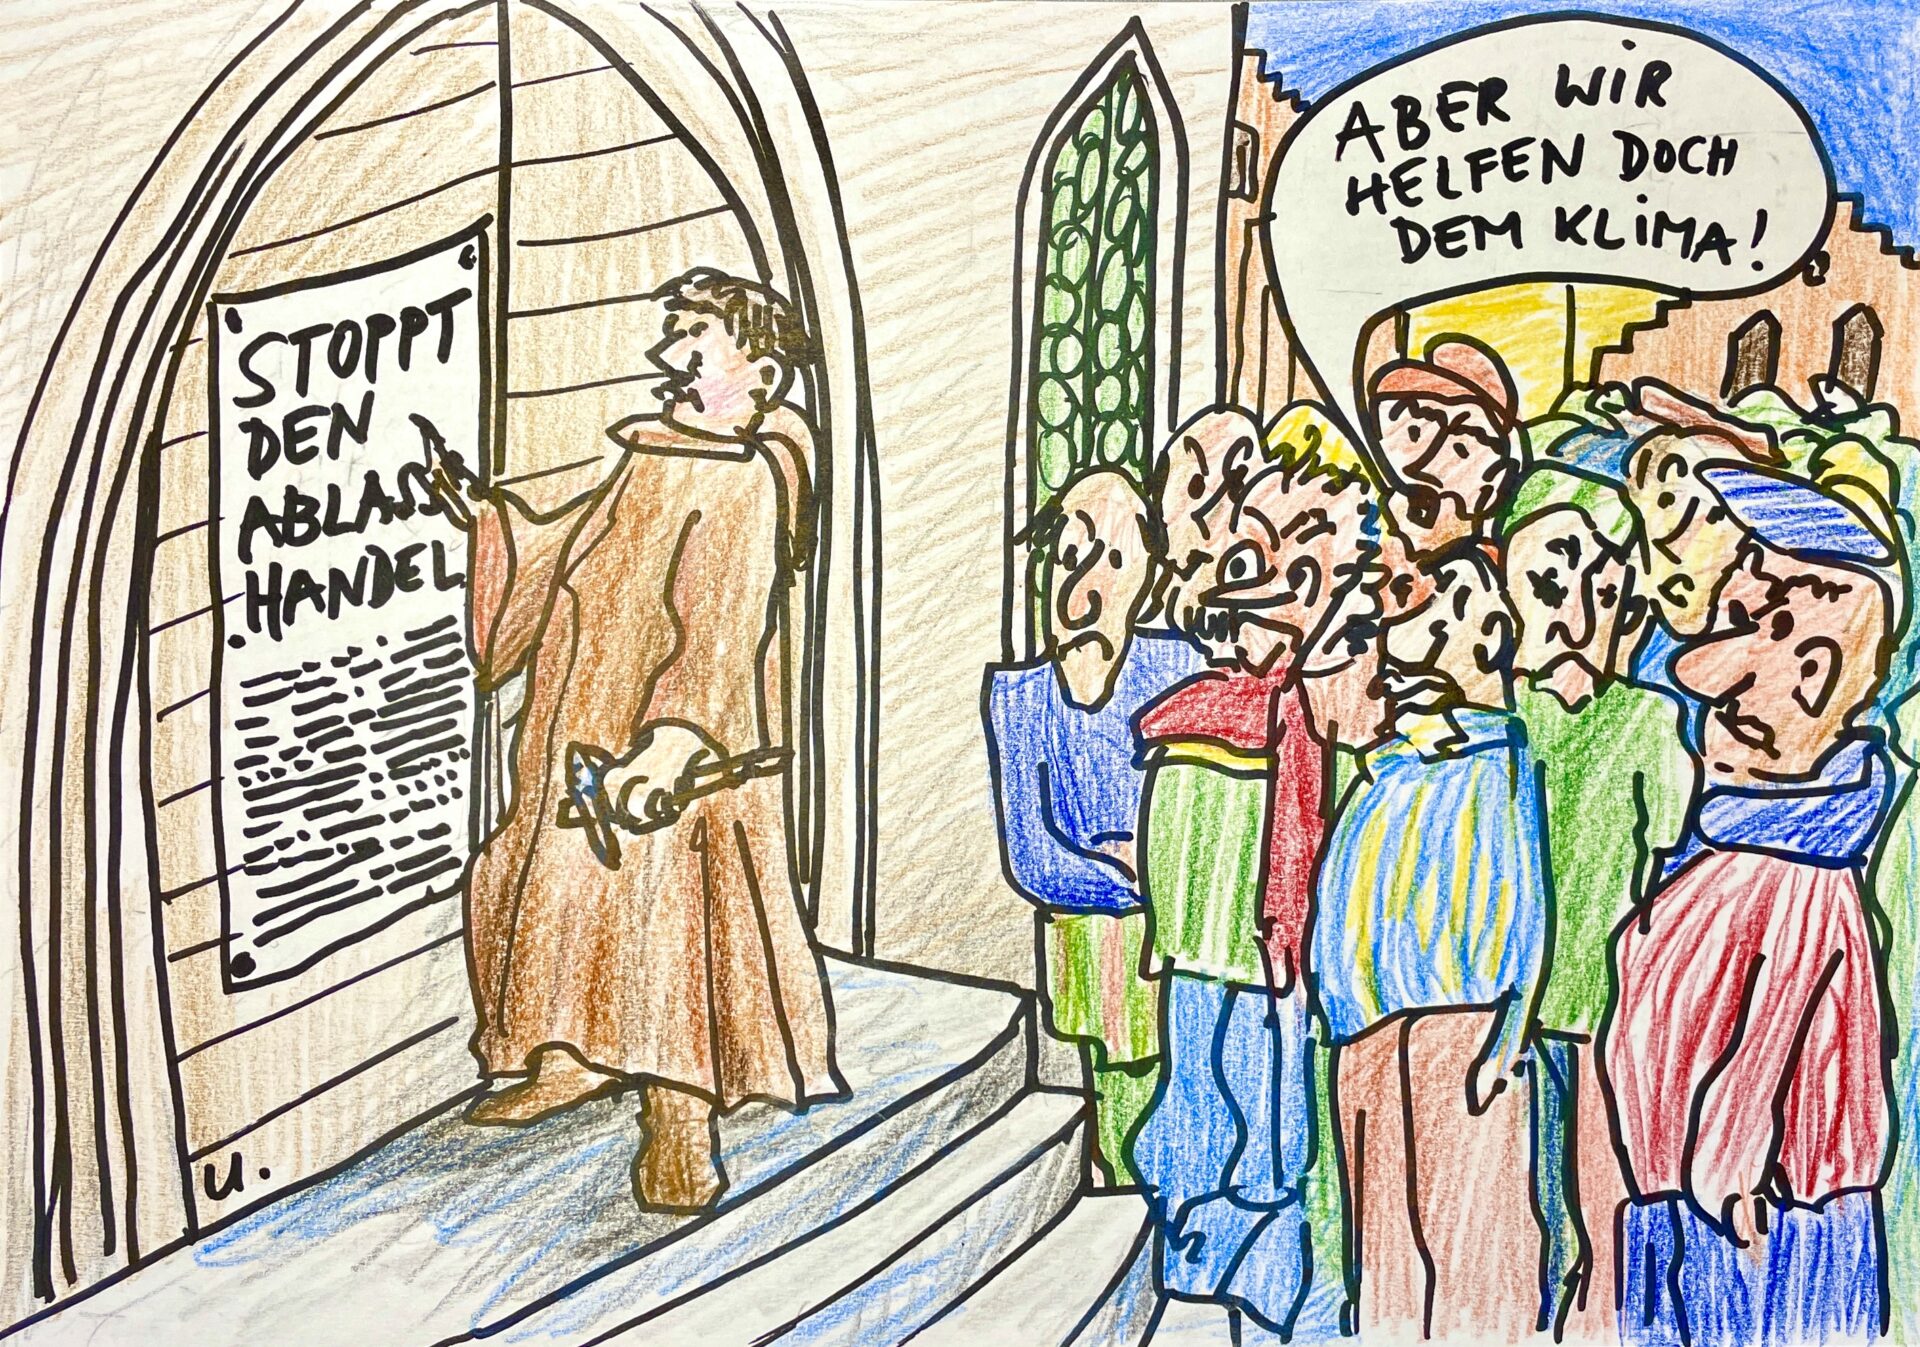 STOPPT
DEN
ABLASS
HANDEL
ABER WIR
HELFEN DOCH
DEM KLIMA!
U.